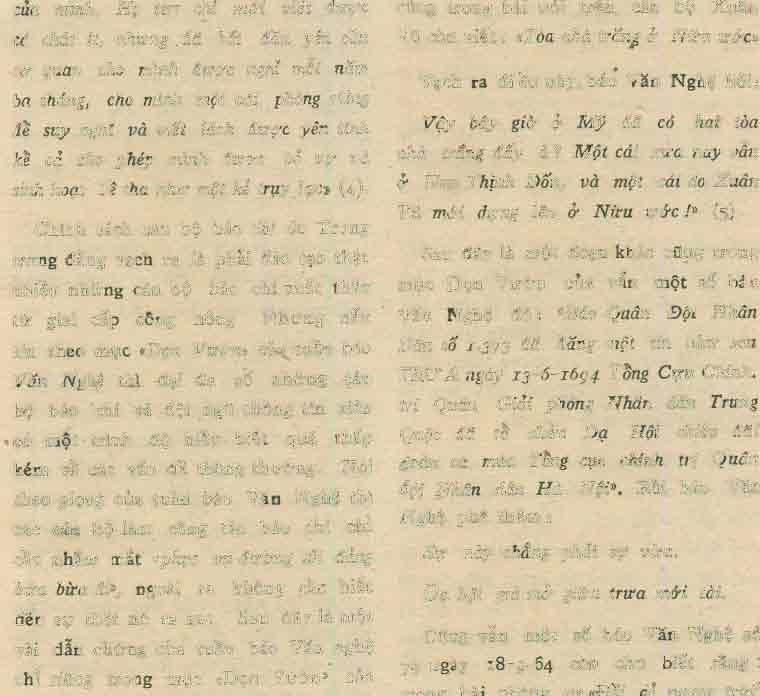 của mình. Họ tuy chỉ mới viết được
cơ quan cho mình được nghỉ mỗi năm
ba tháng, cho mình một cái phòng riêng
để suy nghĩ và viết lách được yên tĩnh
kể cả cho phép mình được bỏ vợ và
sinh hoạt như một kẻ trụy lạc» (4).
Chính sách cán bộ báo chí do Trung
ương đảng vạch ra là phải đào tạo thật
nhiều những cán bộ báo chí xuất thân
từ giai cấp công nông. Nhưng nếu
tin theo mục «Dọn Vườn» của tuần báo
Văn Nghệ thì đại đa số những cán
bộ báo chí và đội ngũ thông tín viên
có một trình độ hiểu biết quá thấp
kém về các vấn đề thông thường. Thôi
theo giọng của tuần báo Văn Nghệ thì
các cán bộ làm công tác báo chí chỉ
cần nhắm mắt «phục vụ đường lối đảng
bừa đi», ngoài ra không cần biết
đến sự thật nó ra sao. Sau đây là một
vài dẫn chứng cho tuần báo Văn nghệ
chỉ riêng trong mục «Dọn Vườn» của
cũng trong bài nói trên, cán bộ Xuân
Tú cho viết: «Tòa nhà trắng ở Nữu ước»
Vạch ra điều này, báo Văn Nghệ hỏi:
Vậy bây giờ ở Mỹ đã có hai tòa
nhà trắng đấy à? Một cái xưa nay vẫn
ở Hoa Thịnh Đốn, và một cái do Xuân
Tú mới dựng lên ở Nữu ước!» (5)
Sau đây là một đoạn khác cũng trong
mục Dọn Vườn của vẫn một số báo
Văn Nghệ đó: «Báo Quân Đội Nhân
Dân số 1.373 đã đăng một tin như sau
ngày 13-6-1694 Tổng Cục Chính
trị Quân Giải phóng Nhân dân Trung
Quốc đã tổ chức Dạ Hội chiêu đãi
đoàn ca múa Tổng cục chính trị Quân
đội Nhân dân Hà Nội». Rồi báo Văn
Nghệ phê thêm:
Sự này chẳng phải sự vừa.
Dạ hội mà mở giữa trưa mới tài.
Cũng vẫn một số báo Văn Nghệ số
ngày 18-9-64 còn cho biết rằng: